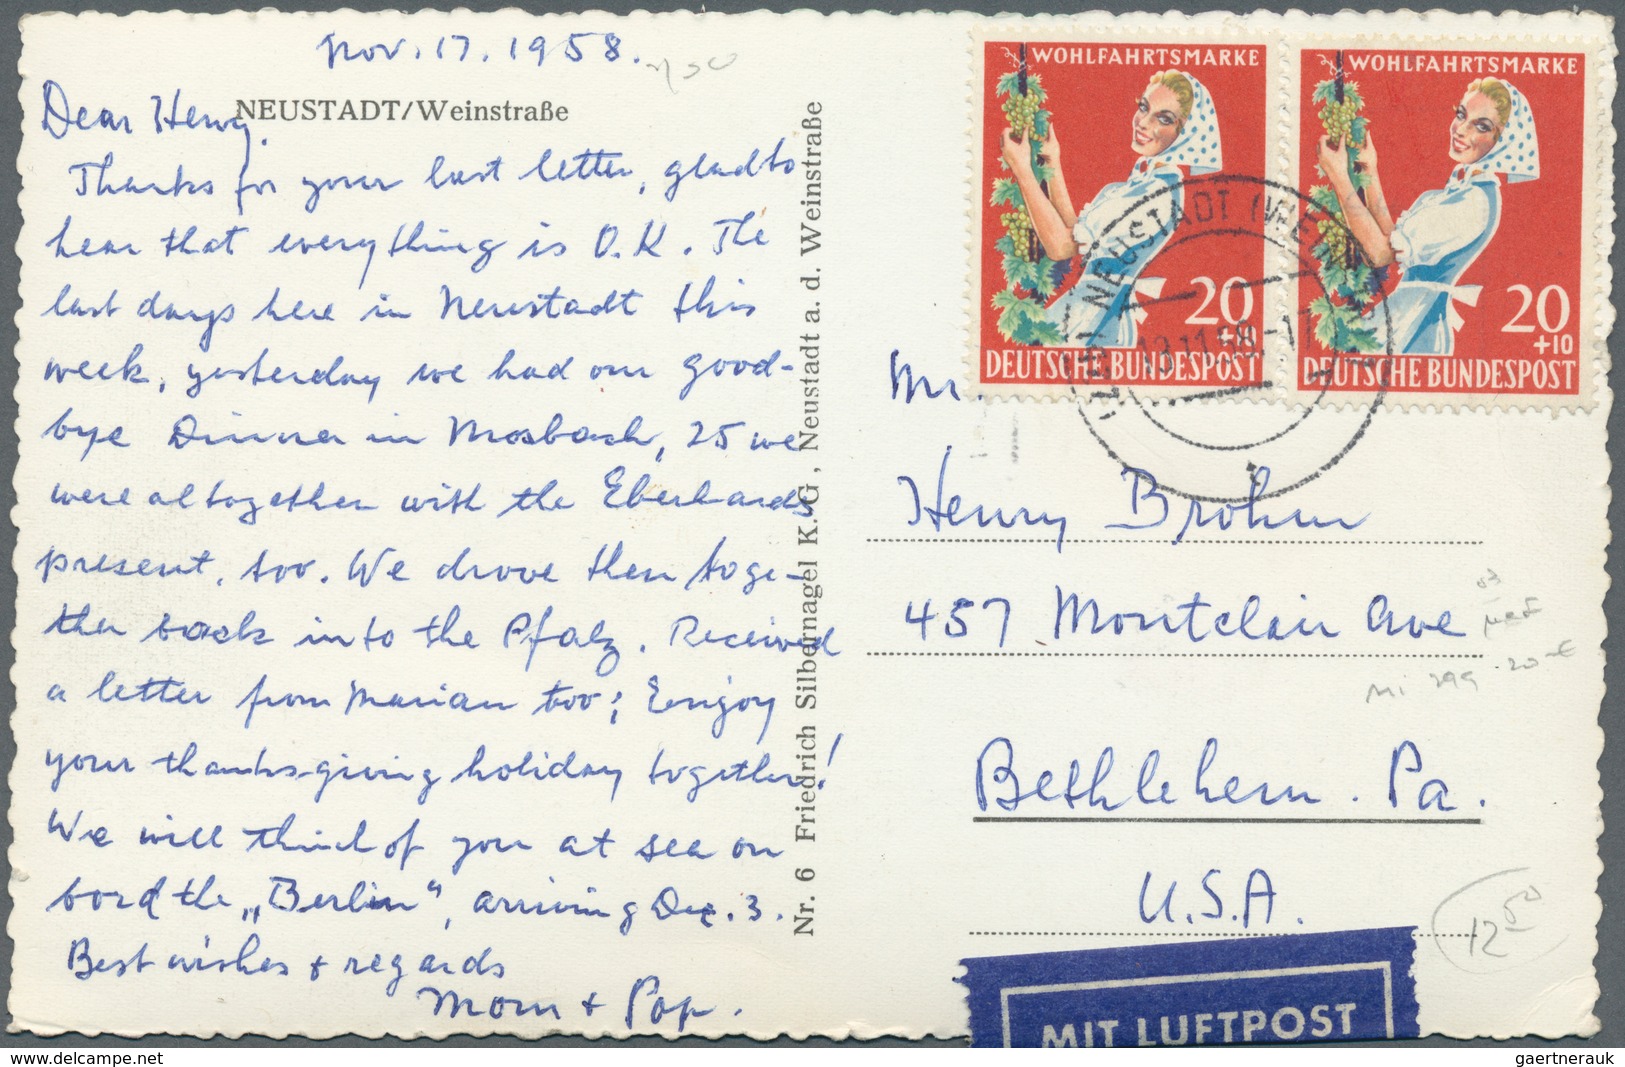 Nov. 17. 1958.
NEUSTADT/Weinstraße
Dear Henry.
Thanks for your last letter, glad to
hear that everything is O.K. The
last days here in Neustadt this
week, yesterday we had our good-
bye Dinner in Mosbach, 25 we
were altogether with the Eberhards
present, too. We drove then toge-
ther back into the Pfalz. Received
a letter from Marian too; Eenjoy
your thanks-giving holiday together!
We will think of you at sea on
bord the „Berlin“, arriving Dec. 3.
Best wishes + regards
Mom + Pop.
Nr. 6 Friedrich Silbernagel K.G., Neustadt a. d. Weinstraße
WOHLFAHRTSMARKE
20
DEUTSCHE BUNDESPOST
WOHLFAHRTSMARKE
20
+10
DEUTSCHE BUNDESPOST
NEUSTADT (WEINSTR
Mr.
Henry Brohm
457 Montclair Ave
Mi 299 20 €
Bethlehem. Pa.
U.S.A.
12 50
MIT LUFTPOST
www.delcampe.net
gaertnerauk